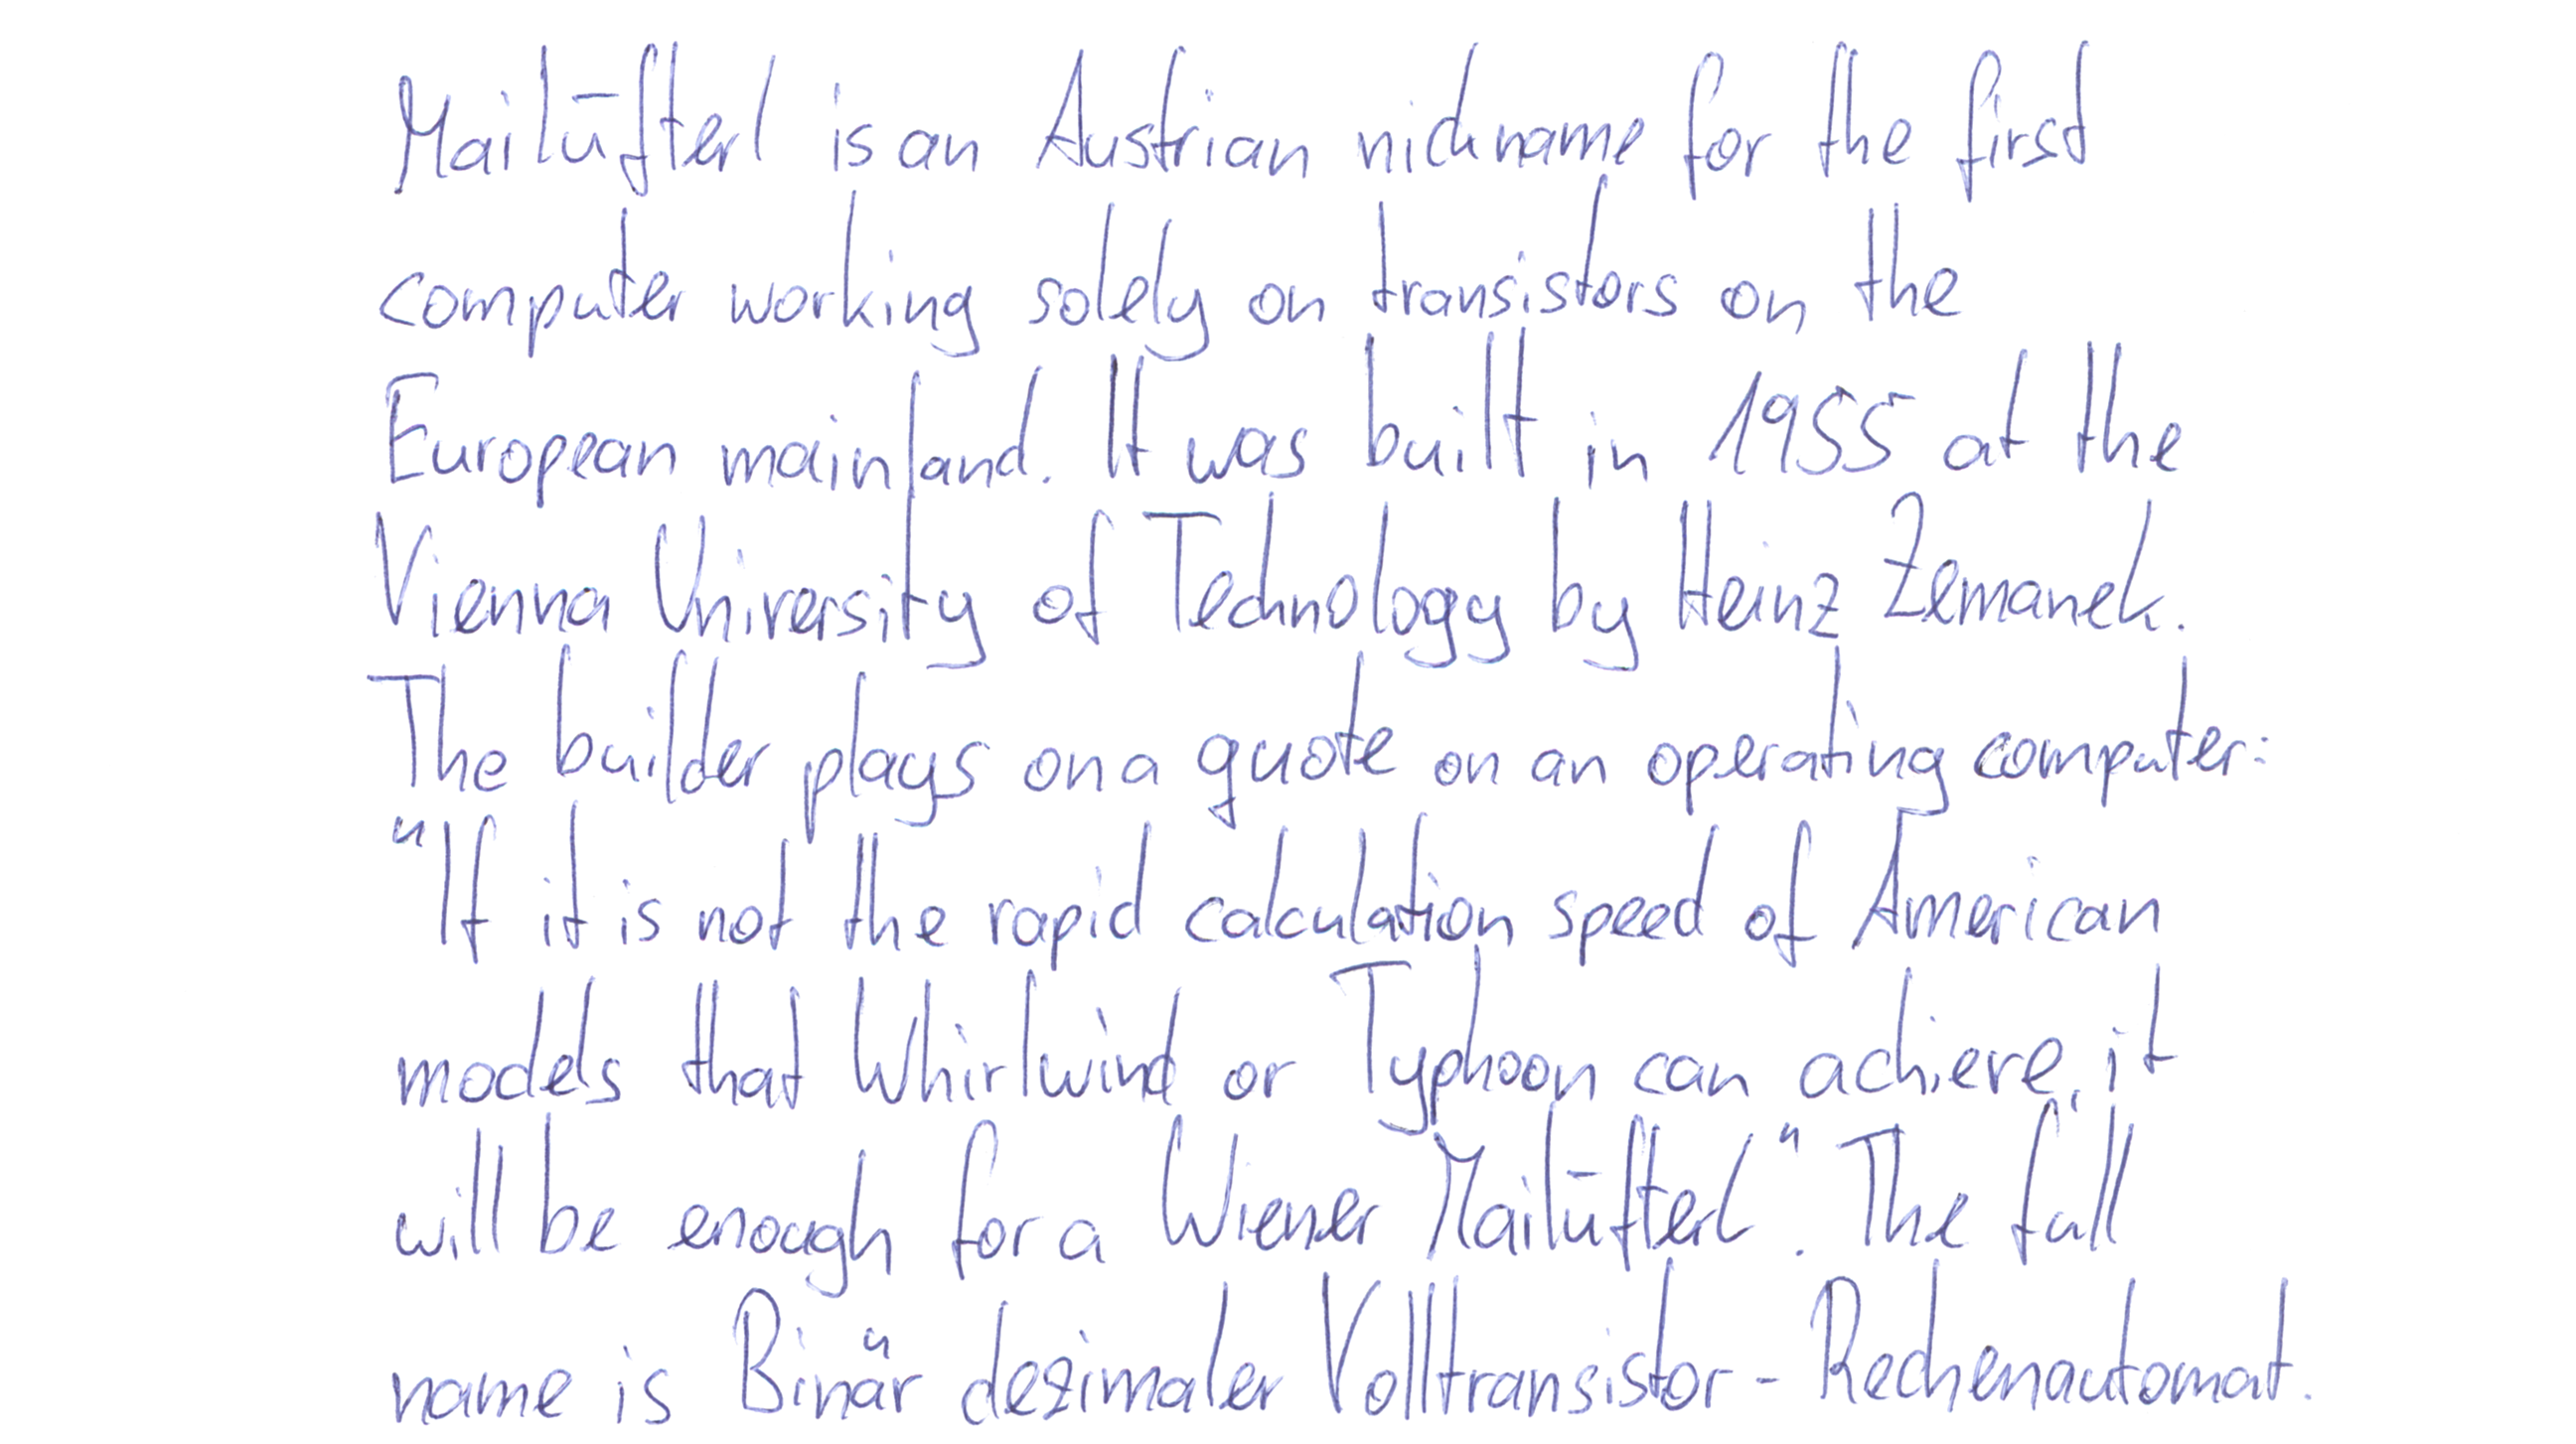 Mailüfterl is an Austrian nickname for the first
computer working solely on transistors on the
European mainland. It was built in 1955 at the
Vienna University of Technology by Heinz Zemanek.
The builder plays on a quote on an operating computer:
"If it is not the rapid calculation speed of American
models that Whirlwind or Typhoon can achieve, it
will be enough for a Wiener Mailüfterl". The full
name is Binär dezimaler Volltransistor-Rechenautomat.